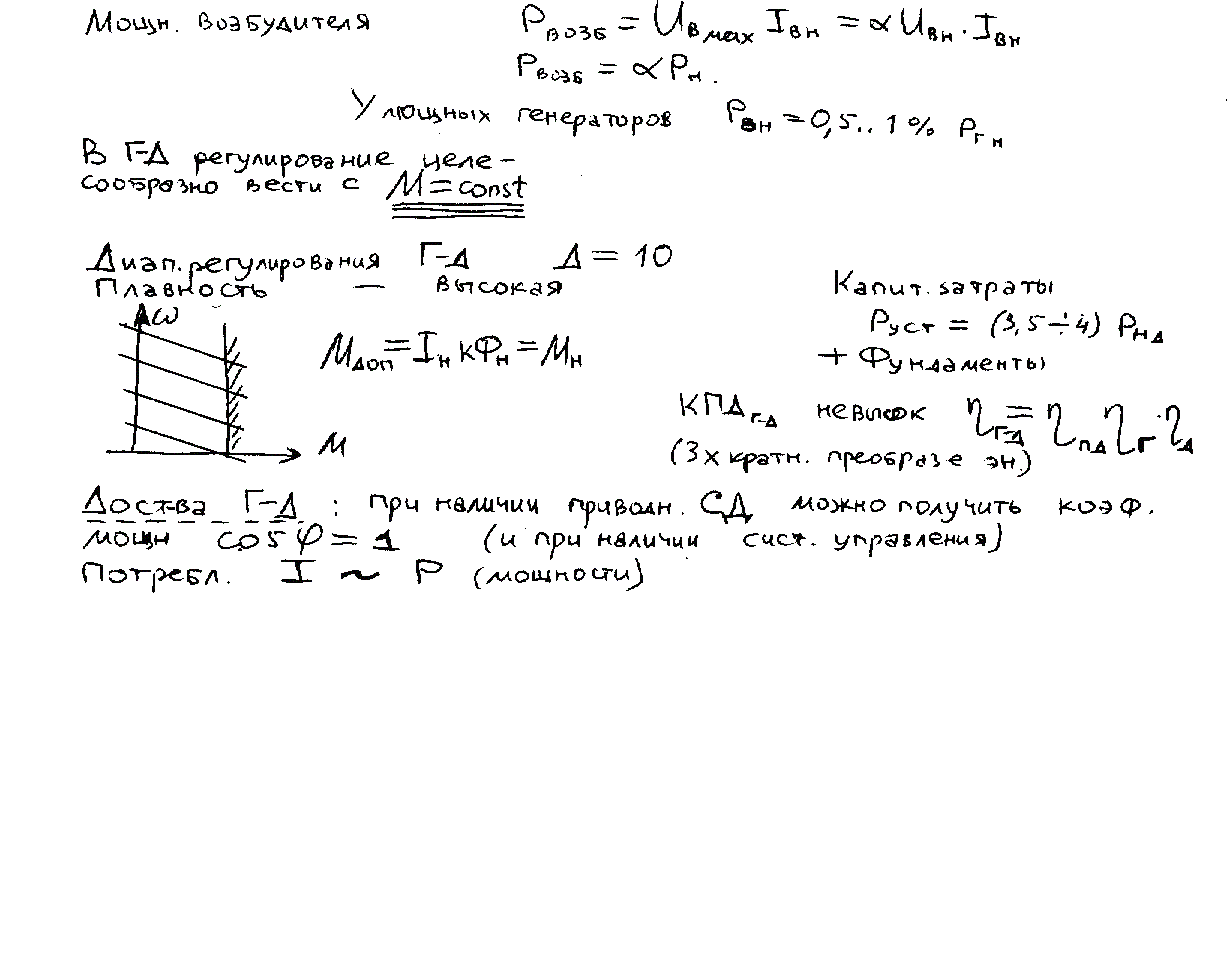 Мощн. возбудителя P возб = U в мах I вн = α U вн · I вн
P возб = α P н.
У мощных генераторов P вн = 0,5..1% P гн
В Г-Д регулирование целе-
сообразно вести с M = const
Диап. регулирования Г-Д Д = 10
Плавность — высокая
Капит. затраты
P уст = (3,5 ÷ 4) P нд
+ Фундаменты
ω
M доп = I н к Ф н = M н
M
КПД г-д невысок η г-д = η пд η г · η д
(3х кратн. преобразе эн)
Дос-тва Г-Д : при наличии приводн. СД можно получить коэф.
мощн cos φ = 1 (и при наличии сист. управления)
Потребл. I ~ P (мощности)